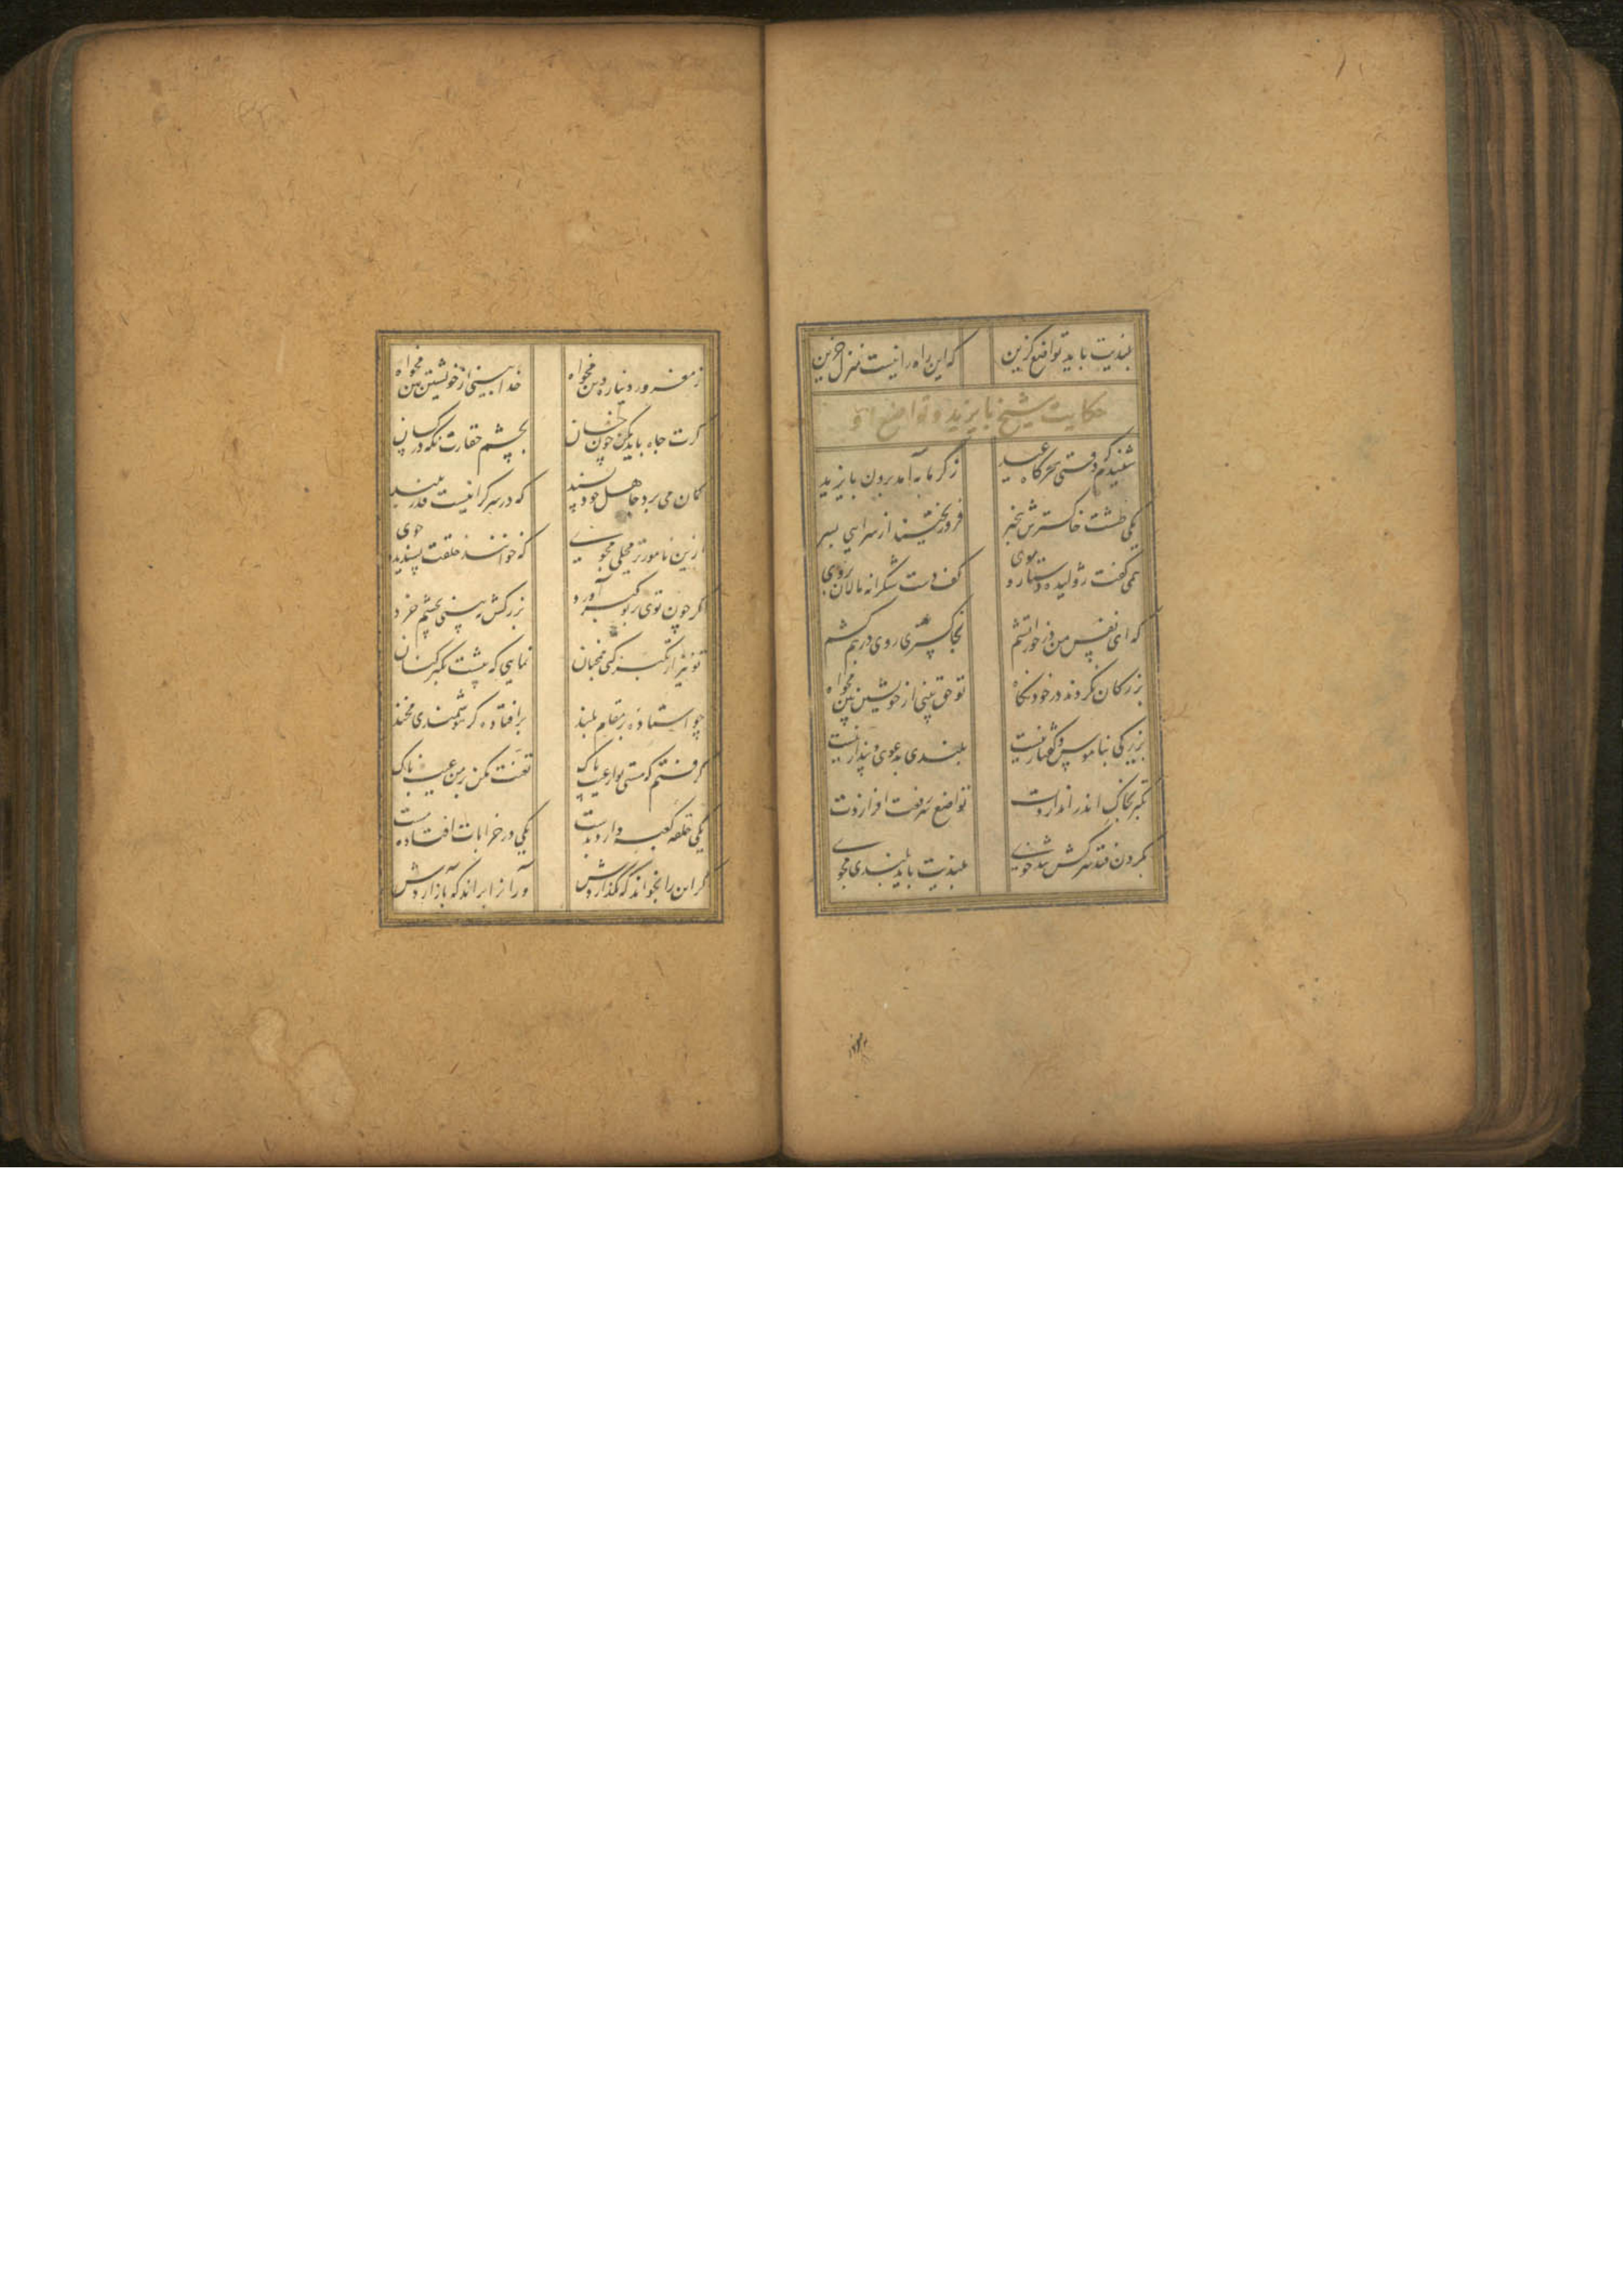 بلندیت باید تواضع گزین که این راه را نیست منزل جزین
حکایت شیخ بایزید و تواضع او
شنیدم که وقتی سحرگاه عید ز گرمابه آمد برون بایزید
یکی طشت خاکسترش بیخبر فرو ریختند از سرایی بسر
همی گفت ژولیده دستار و موی کف دست شکرانه مالان بروی
که ای نفس من در خور آتشم بخاکستری روی درهم کشم
بزرگان نکردند در خود نگاه تو حق بینی از خویشتن بین مخواه
بزرگی بناموس و گفتار نیست بلندی بدعوی و پندار نیست
تکبر بخاک اندر اندازدت تواضع سر رفعت افرازدت
بگردن فتد سرکش تندخوی بلندیت باید بلندی مجوی
ز مغرور دنیا ره دین مخواه خدا بینی از خویشتن بین مخواه
گرت جاه باید مکن چون خسان بچشم حقارت نگه در کسان
گمان می برد جاهل خودپسند که در سرگرانیست قدر بلند
ازین نامورتر محلی مجوی که خوانند خلقت پسندیده خوی
گر چون توی بر تو کبر آورد بزرگش نه بینی بچشم خرد
تو نیز ار تکبر کنی همچنان نمایی که پیشت تکبر کنان
چو استاده بر مقام بلند بر افتاده گر هوشمندی مخند
گرفتم که هستی تو از عیب پاک تعنت مکن بر من عیب ناک
یکی حلقه کعبه دارد بدست یکی در خرابات افتاده مست
گر این را بخواند که نگذاردش ور آنرا براند که باز آردش